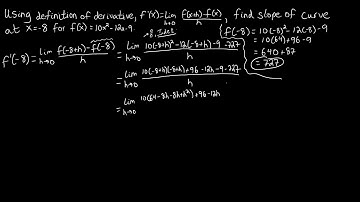 Using definition of derivative, f'(x)=lim h→0 f(x+h)-f(x) / h, find slope of curve
at x=-8 for f(x)=10x²-12x-9.
f(-8)=10(-8)²-12(-8)-9
=10(64)+96-9
=640+87
=727
f'(-8)=lim h→0 f(-8+h)-f(-8) / h = lim h→0 10(-8+h)²-12(-8+h)-9-727 / h
=lim h→0 10(-8+h)(-8+h)+96-12h-9-727 / h
=lim h→0 10(64-8h-8h+h²)+96-12h